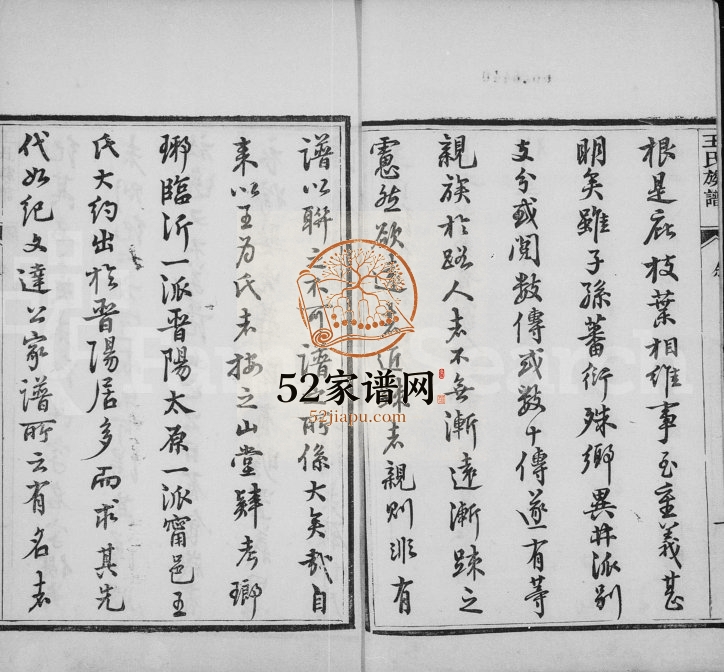 王氏族譜
根是庇枝葉相維事至重義甚
明矣雖子孫蕃衍殊鄉異井派別
支分或閱數傳或數十傳遂有等
親族於路人者不無漸遠漸疎之
慮然欲近者親則非有
譜以聯之不可譜之所係大矣哉自
來以王為氏者按之山堂肆考瑯
琊臨沂一派晉陽太原一派甯邑王
氏大約出於晉陽居多而求其先
代如紀文達公家譜所云有名者
52家谱网
52jiapu.com
FamilySearch